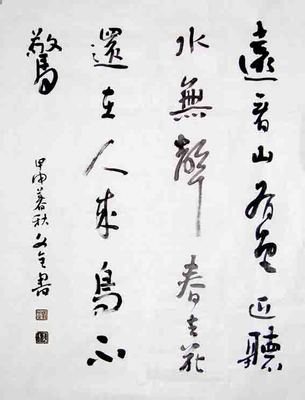 遠看山有色近聽
水無聲春去花
還在人來鳥不
驚
甲申暮秋文全書